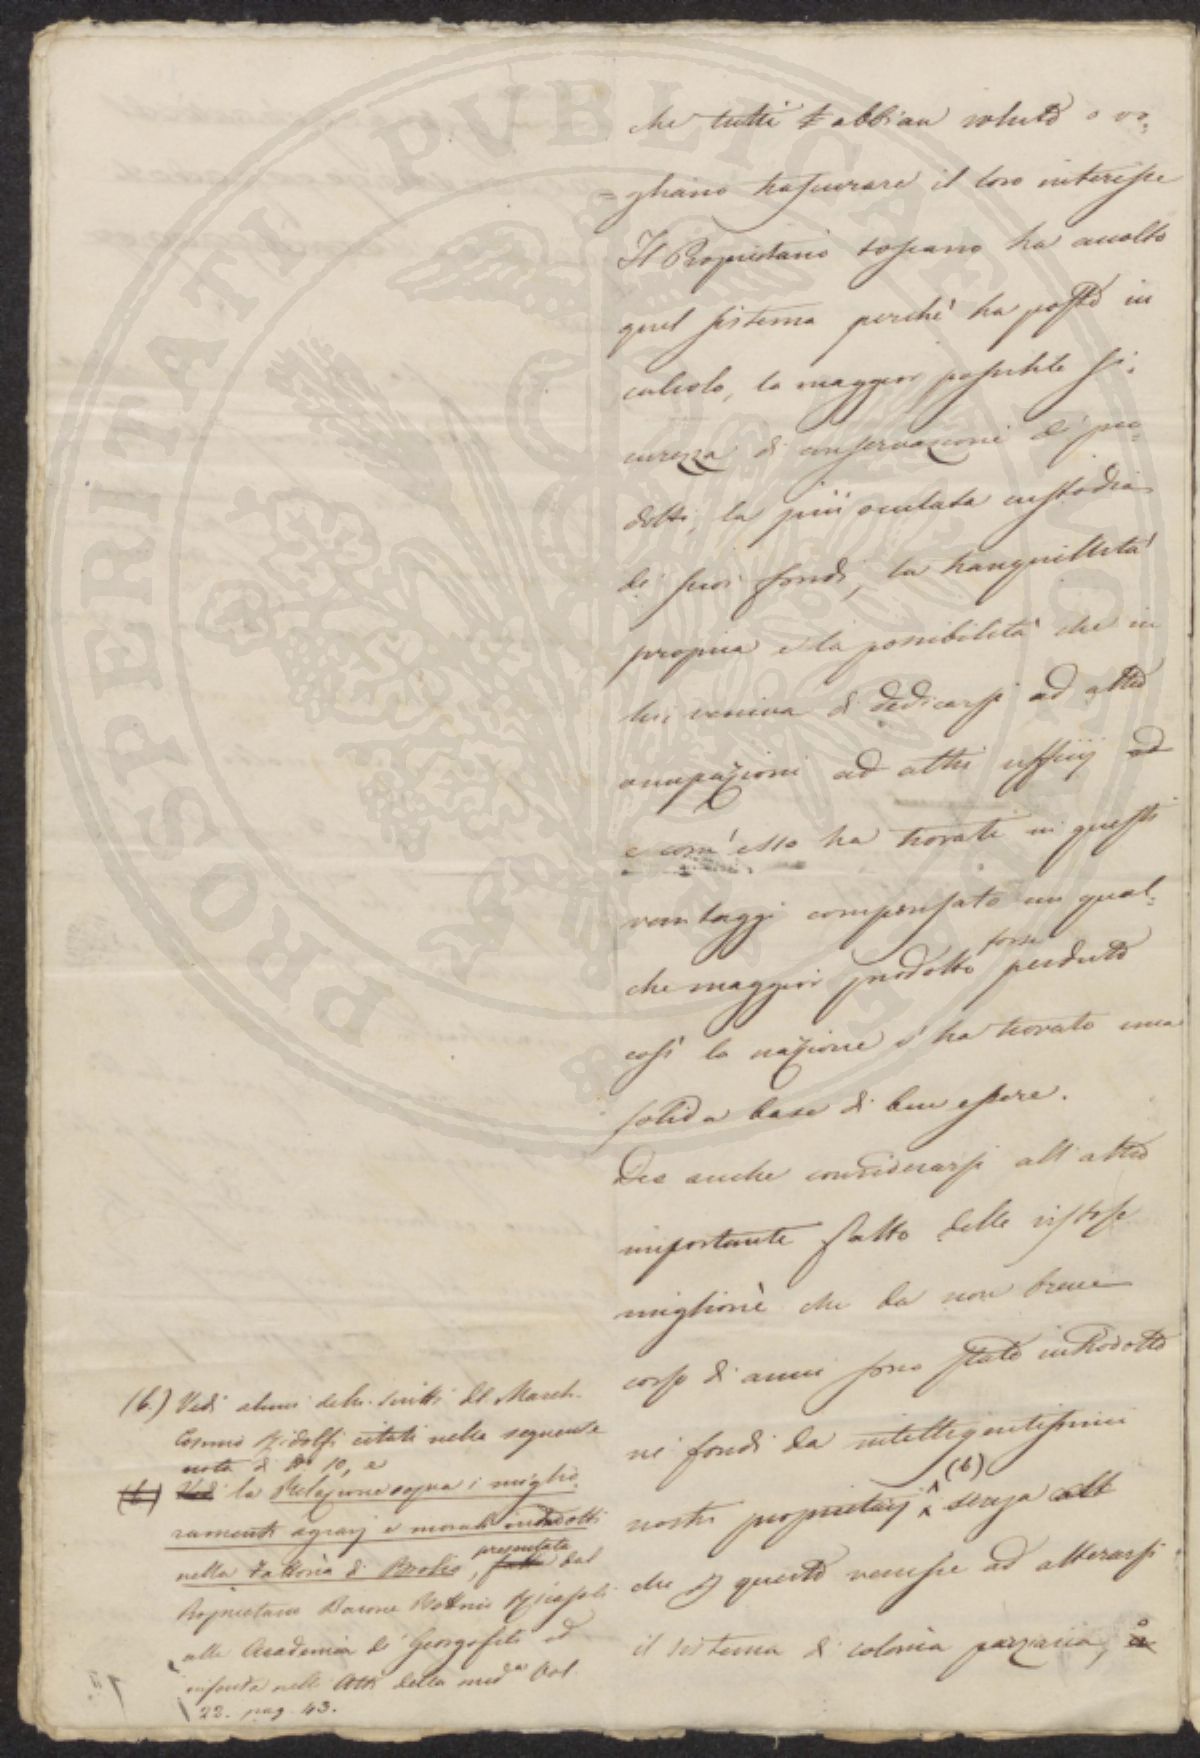 che tutti abbian voluto o vo=
=gliano trascurare il loro interesse
Il Proprietario toscano ha accolto
quel sistema perchè ha posto in
calcolo, la maggior possibile si=
curezza di conservazione de' pro=
dotti, la più oculata custodia
de' suoi fondi, la tranquillità
propria e la possibilità che in
lui veniva di dedicarsi ad altre
occupazioni ad altri ufficij ad
e com' esso ha trovato in questi
vantaggi compensato un qual=
che maggior prodotto forse perduto
così la nazione vi ha trovato una
solida base di ben essere.
Dee anche considerarsi all' altro
importante fatto delle vistose
migliorie che da non breve
corso di anni sono state introdotte
ne' fondi da intelligentissimi
nostri proprietarj (6) senza
che p questo venisse ad alterarsi
il sistema di colonia parziaria, a
(6.) Vedi alcuni delli scritti del March.
Cosimo Ridolfi citati nella seguente
nota di N° 10, e
(6) Vedi la Relazione sopra i miglio=
ramenti agrarj e morali introdotti
nella Fattoria di Brolio, fatta presentata dal
Proprietario Barone Bettino Ricasoli
alla Accademia de' Georgofili ed
inserita nelli Atti della med.a Vol.
22. pag. 43.
PROSPERITATI PUBLICAE AUGENDAE